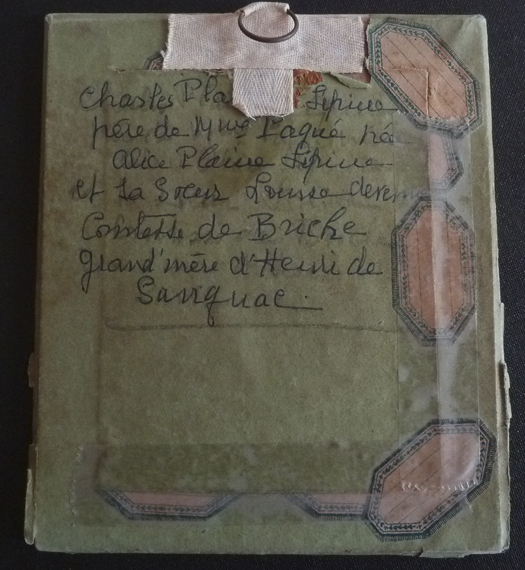 Charles Pla Lépine
père de Mme Paqué née
Alice Plaine Lépine
et sa Soeur Louise
Comtesse de Briche
grand'mère d'Henri de